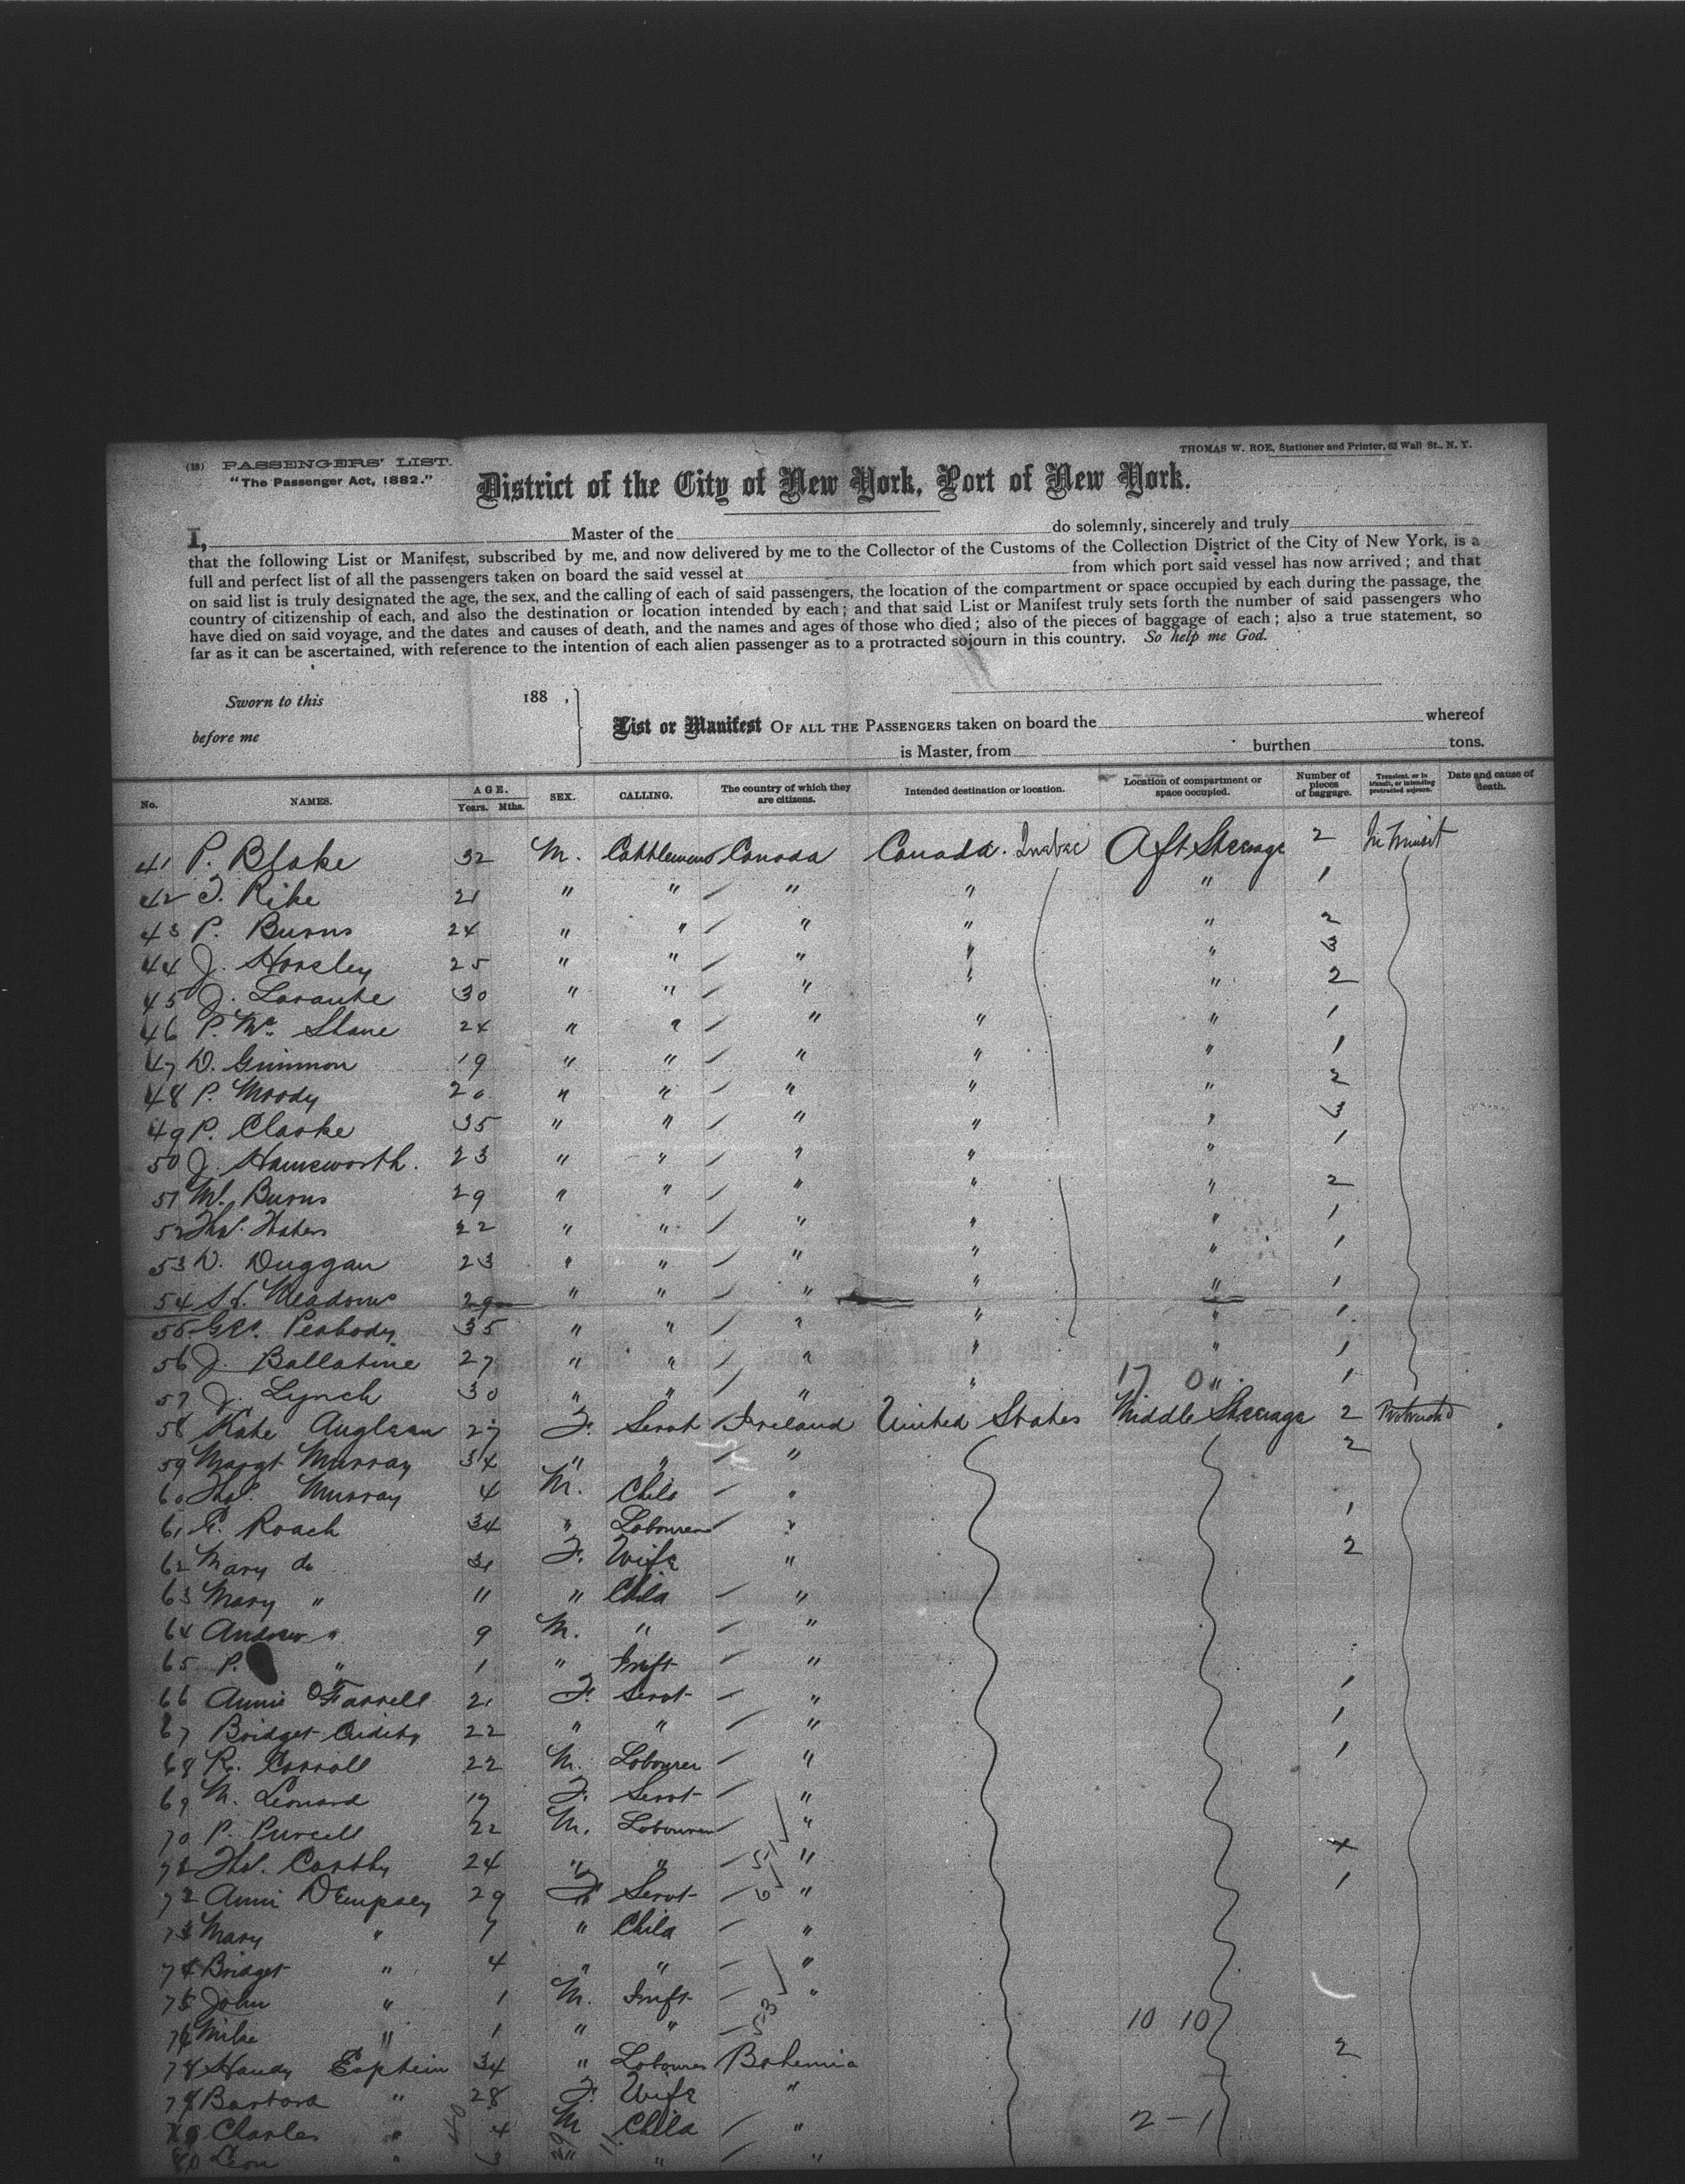 THOMAS W. ROE, Stationer and Printer, 63 Wall St., N. Y.
(18) PASSENGERS' LIST.
"The Passenger Act, 1882."
District of the City of New York, Port of New York.
I, Master of the do solemnly, sincerely and truly
that the following List or Manifest, subscribed by me, and now delivered by me to the Collector of the Customs of the Collection District of the City of New York, is a
full and perfect list of all the passengers taken on board the said vessel at from which port said vessel has now arrived; and that
on said list is truly designated the age, the sex, and the calling of each of said passengers, the location of the compartment or space occupied by each during the passage, the
country of citizenship of each, and also the destination or location intended by each; and that said List or Manifest truly sets forth the number of said passengers who
have died on said voyage, and the dates and causes of death, and the names and ages of those who died; also of the pieces of baggage of each; also a true statement, so
far as it can be ascertained, with reference to the intention of each alien passenger as to a protracted sojourn in this country. So help me God.
Sworn to this 188 ,
before me
List or Manifest OF ALL THE PASSENGERS taken on board the whereof
is Master, from burthen tons.
No. NAMES. AGE. Years. Mths. SEX. CALLING. The country of which they are citizens. Intended destination or location. Location of compartment or space occupied. Number of pieces of baggage. Transient, or in transit, or intending protracted sojourn. Date and cause of death.
41 P. Blake 32 M. Canada Canada. Aft Steerage 2 In Transit
42 T. Rike 21 " " " " " 1
43 P. Burns 24 " " " " " 2
44 J. Horsley 25 " " " " " 3
45 J. 30 " " " " " 2
46 P. Mc Shane 24 " " " " " 1
47 D. 19 " " " " " 1
48 P. Moody 20 " " " " " 2
49 P. Clarke 35 " " " " " 3
50 J. Hainsworth. 23 " " " " " 1
51 M. Burns 29 " " " " " 2
52 Thos. 22 " " " " " 1
53 D. Duggan 23 " " " " " 1
54 Meadows 29 " " " " " 1
55 Geo. Peabody 35 " " " " " 1
56 J. Ballatine 27 " " " " " 1
57 J. Lynch 30 " " " " 17 0 " 1
58 Kate 27 F. Servt Ireland United States Middle Steerage 2 Protracted
59 Margt Murray 34 " " " 2
60 Thos. Murray 4 M. Child "
61 Roach 34 " Labourer " 1
62 Mary do 31 F. Wife " 2
63 Mary " 11 " Child "
64 Andrew " 9 M. " "
65 P. " 1 " Inft "
66 Annie O'Farrell 21 F. Servt " 1
67 Bridget 22 " " " 1
68 R. Carroll 22 M. Labourer " 1
69 M. Leonard 19 F. Servt "
70 P. Purcell 22 M. Labourer "
Thos. Carthy 24 " " "
72 Annie Dempsey 29 F Servt " 1
73 Mary " 7 " Child "
74 Bridget " 4 " " "
75 John " 1 M. Inft "
76 Mike " 1 " " 10 10
Epstein 34 " Labourer Bohemia 2
Barbara " 28 F. Wife "
Charles " 4 M Child " 2-1
80 Leon " 3 " " "